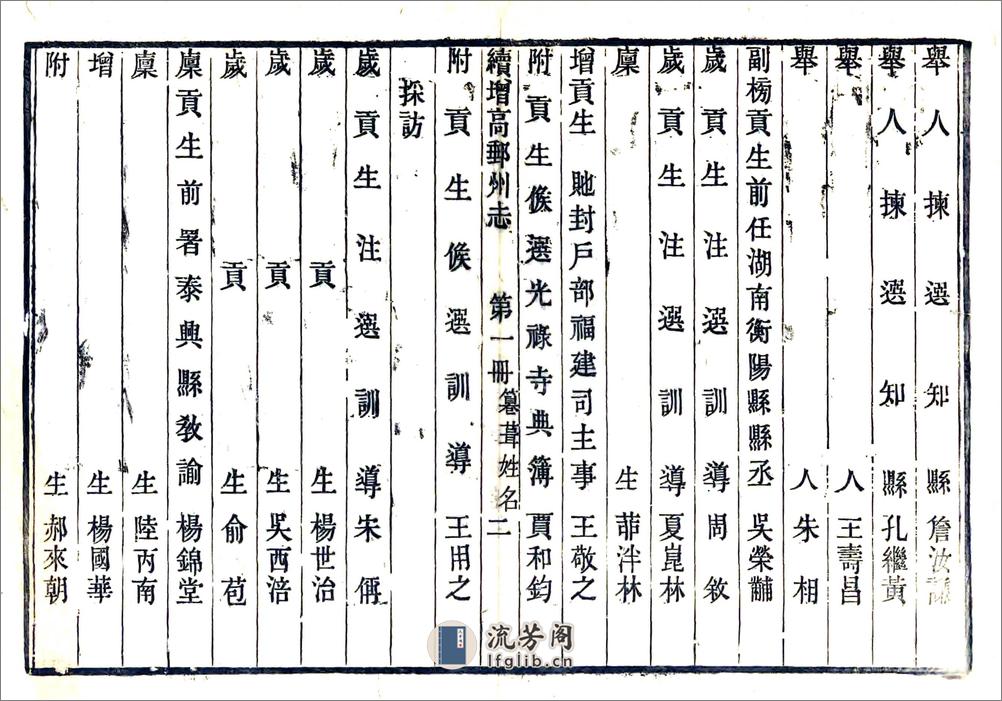 舉人揀選知縣詹汝謙
舉人揀選知縣孔繼黃
舉人王壽昌
舉人朱相
副榜貢生前任湖南衡陽縣縣丞吳榮黼
歲貢生注選訓導周敘
歲貢生注選訓導夏崑林
廩生茆泮林
增貢生貤封戶部福建司主事王敬之
附貢生候選光祿寺典簿賈和鈞
續增高郵州志 第一冊 纂葺姓名 二
附貢生候選訓導王用之
採訪
歲貢生注選訓導朱偁
歲貢生楊世治
歲貢生吳西涪
歲貢生俞苞
廩貢生前署泰興縣教諭楊錦堂
廩生陸丙南
增生楊國華
附生郝來朝
流芳阁
lfglib.cn